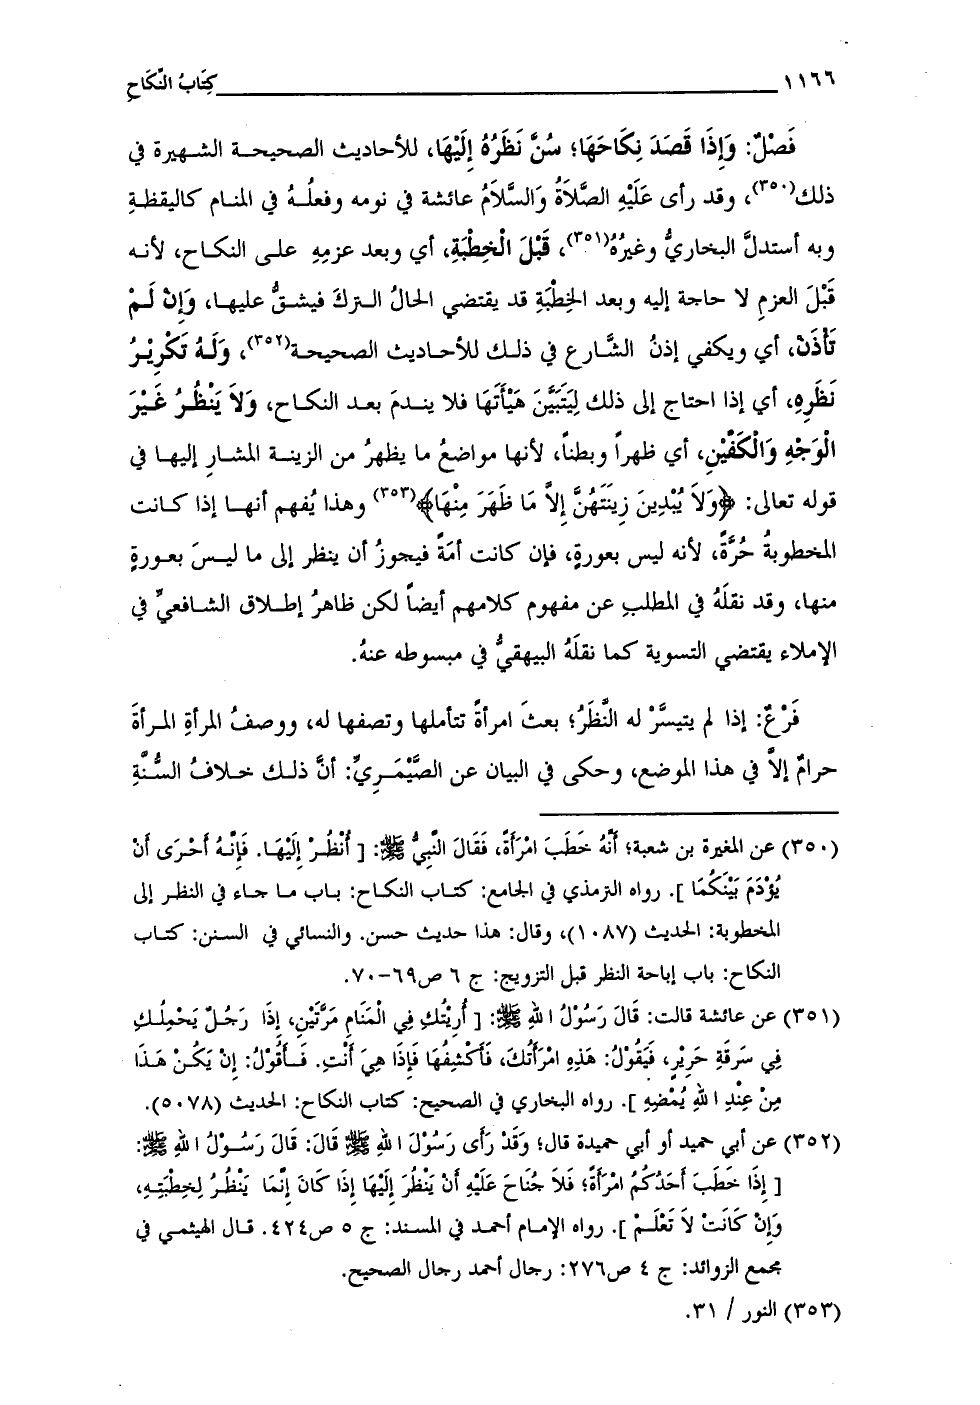 ١١٦٦ كِتَابُ النِّكَاحِ
فَصْلٌ: وَإِذَا قَصَدَ نِكَاحَهَا؛ سُنَّ نَظَرُهُ إِلَيْهَا، للأحاديث الصحيحة الشهيرة في
ذلك(٣٥٠)، وقد رأى عَلَيْهِ الصَّلاَةُ وَالسَّلاَمُ عائشة في نومه وفعلُهُ في المنام كاليقظةِ
وبه أستدلَّ البخاريُّ وغيرُهُ(٣٥١)، قَبْلَ الْخِطْبَةِ، أي وبعد عزمِهِ على النكاح، لأنه
قَبْلَ العزمِ لا حاجة إليه وبعد الخِطْبَةِ قد يقتضي الحالُ التركَ فيشقُّ عليها، وَإِنْ لَمْ
تَأْذَنْ، أي ويكفي إذنُ الشَّارع في ذلك للأحاديث الصحيحة(٣٥٢)، وَلَهُ تَكْرِيْرُ
نَظَرِهِ، أي إذا احتاج إلى ذلك لِيَتَبَيَّنَ هَيْأَتَهَا فلا يندمَ بعد النكاح، وَلاَ يَنْظُرُ غَيْرَ
الْوَجْهِ وَالْكَفَّيْنِ، أي ظهراً وبطناً، لأنها مواضعُ ما يظهرُ من الزينة المشارِ إليها في
قوله تعالى: ﴿وَلاَ يُبْدِينَ زِينَتَهُنَّ إِلاَّ مَا ظَهَرَ مِنْهَا﴾(٣٥٣) وهذا يُفهم أنها إذا كانت
المخطوبةُ حُرَّةً، لأنه ليس بعورةٍ، فإن كانت أمَةً فيجوزُ أن ينظر إلى ما ليسَ بعورةٍ
منها، وقد نقلَهُ في المطلبِ عن مفهوم كلامهم أيضاً لكن ظاهرُ إطلاق الشافعيِّ في
الإملاء يقتضي التسوية كما نقلَهُ البيهقيُّ في مبسوطه عنهُ.
فَرْعٌ: إذا لم يتيسَّرْ له النَّظَرُ؛ بعثَ امرأةً تتأملها وتصفها له، ووصفُ المرأةِ المرأةَ
حرامٌ إلاَّ في هذا الموضع، وحكى في البيان عن الصَّيْمَرِيِّ: أنَّ ذلك خلافُ السُّنَّةِ
(٣٥٠) عن المغيرة بن شعبة؛ أَنَّهُ خَطَبَ امْرَأَةً، فَقَالَ النَّبِيُّ ﷺ: [ أُنْظُرْ إِلَيْهَا. فَإِنَّهُ أَحْرَى أَنْ
يُؤْدَمَ بَيْنَكُمَا ]. رواه الترمذي في الجامع: كتاب النكاح: باب ما جاء في النظر إلى
المخطوبة: الحديث (١٠٨٧)، وقال: هذا حديث حسن. والنسائي في السنن: كتاب
النكاح: باب إباحة النظر قبل التزويج: ج ٦ ص٦٩-٧٠.
(٣٥١) عن عائشة قالت: قَالَ رَسُوْلُ اللهِ ﷺ: [ أُرِيْتُكِ فِي الْمَنَامِ مَرَّتَيْنِ، إِذَا رَجُلٌ يَحْمِلُكِ
فِي سَرَقَةِ حَرِيْرٍ، فَيَقُوْلُ: هَذِهِ امْرَأَتُكَ، فَأَكْشِفُهَا فَإِذَا هِيَ أَنْتِ. فَأَقُوْلُ: إِنْ يَكُنْ هَذَا
مِنْ عِنْدِ اللهِ يُمْضِهِ ]. رواه البخاري في الصحيح: كتاب النكاح: الحديث (٥٠٧٨).
(٣٥٢) عن أبي حميد أو أبي حميدة قال؛ وَقَدْ رَأَى رَسُوْلَ اللهِ ﷺ قَالَ: قَالَ رَسُوْلُ اللهِ ﷺ:
[ إِذَا خَطَبَ أَحَدُكُمُ امْرَأَةً؛ فَلاَ جُنَاحَ عَلَيْهِ أَنْ يَنْظُرَ إِلَيْهَا إِذَا كَانَ إِنَّمَا يَنْظُرُ لِخِطْبَتِهِ،
وَإِنْ كَانَتْ لاَ تَعْلَمْ ]. رواه الإمام أحمد في المسند: ج ٥ ص٤٢٤. قال الهيثمي في
مجمع الزوائد: ج ٤ ص٢٧٦: رجال أحمد رجال الصحيح.
(٣٥٣) النور / ٣١.